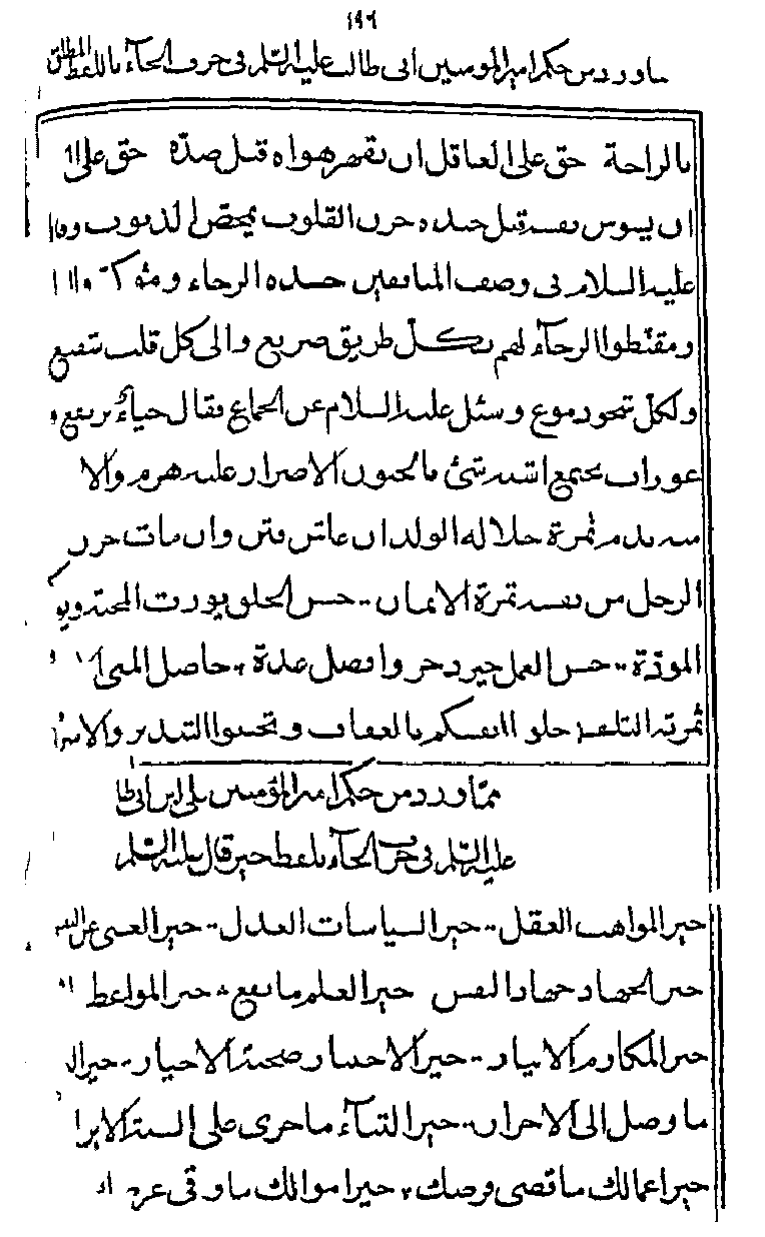 ١٩٦
ما ورد من حكم امير المؤمنين ابي طالب عليه السلم في حرف الحآء باللفظ المطلق
بالراحة حق على العاقل ان يقهر هواه قبل ضدّه حق على
ان يسوس نفسه قبل جنده حزن القلوب يمحّص الذنوب
عليه السلام في وصف المنافقين حسده الرخاء ومؤكّد
ومقنّطوا الرجآء لهم بكلّ طريق صريع والى كل قلب شفيع
ولكلّ شجو دموع وسئل عليه السلام عن الجماع فقال حياءٌ يرتفع و
عورات تجتمع اشبه شئ بالجنون الاصرار عليه هرم والا
منه ندم ثمرة حلاله الولد ان عاش فتن وان مات حزن
الرجل من نفسه ثمرة الايمان حسن الخلق يورث المحبّة ويو
المودّة حسن العمل خير ذخر وافضل عدّة حاصل المنى
ثمرته التلف حلّوا انفسكم بالعفاف وتجنبوا التبذير والاسرا
ممّا ورد من حكم امير المؤمنين علي ابن ابي طا
عليه السّلم في حرف الخآء بلفظ خير قال عليه السّلم
خير المواهب العقل خير السياسات العدل خير الغنى غنى النفس
خير الجهاد جهاد النفس خير العلم ما نفع خير المواعظ
خير المكارم الايثار خير الاختيار صحبة الاخيار خير ال
ما وصل الى الاحرار خير الثناء ما جرى على السنة الابرا
خير اعمالك ما قضى فرضك خير اموالك ما وقى عرض